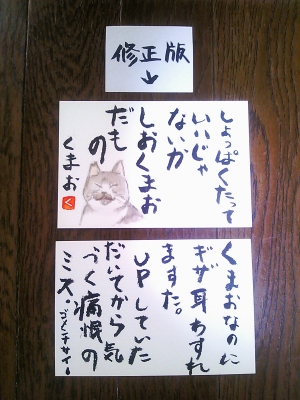 修正版
↓
しょっぱくたって
いいじゃ
ないか
しおくまお
だもの
くまお
く
くまおなのに
ギザ耳わすれ
ますた。
UPしていた
だいてから気
づく痛恨の
ミス。